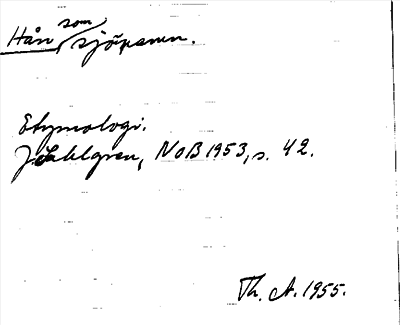 Hån som sjönamn.
Etymologi.
J. Sahlgren, NoB 1953, s. 42.
Th. A. 1955.